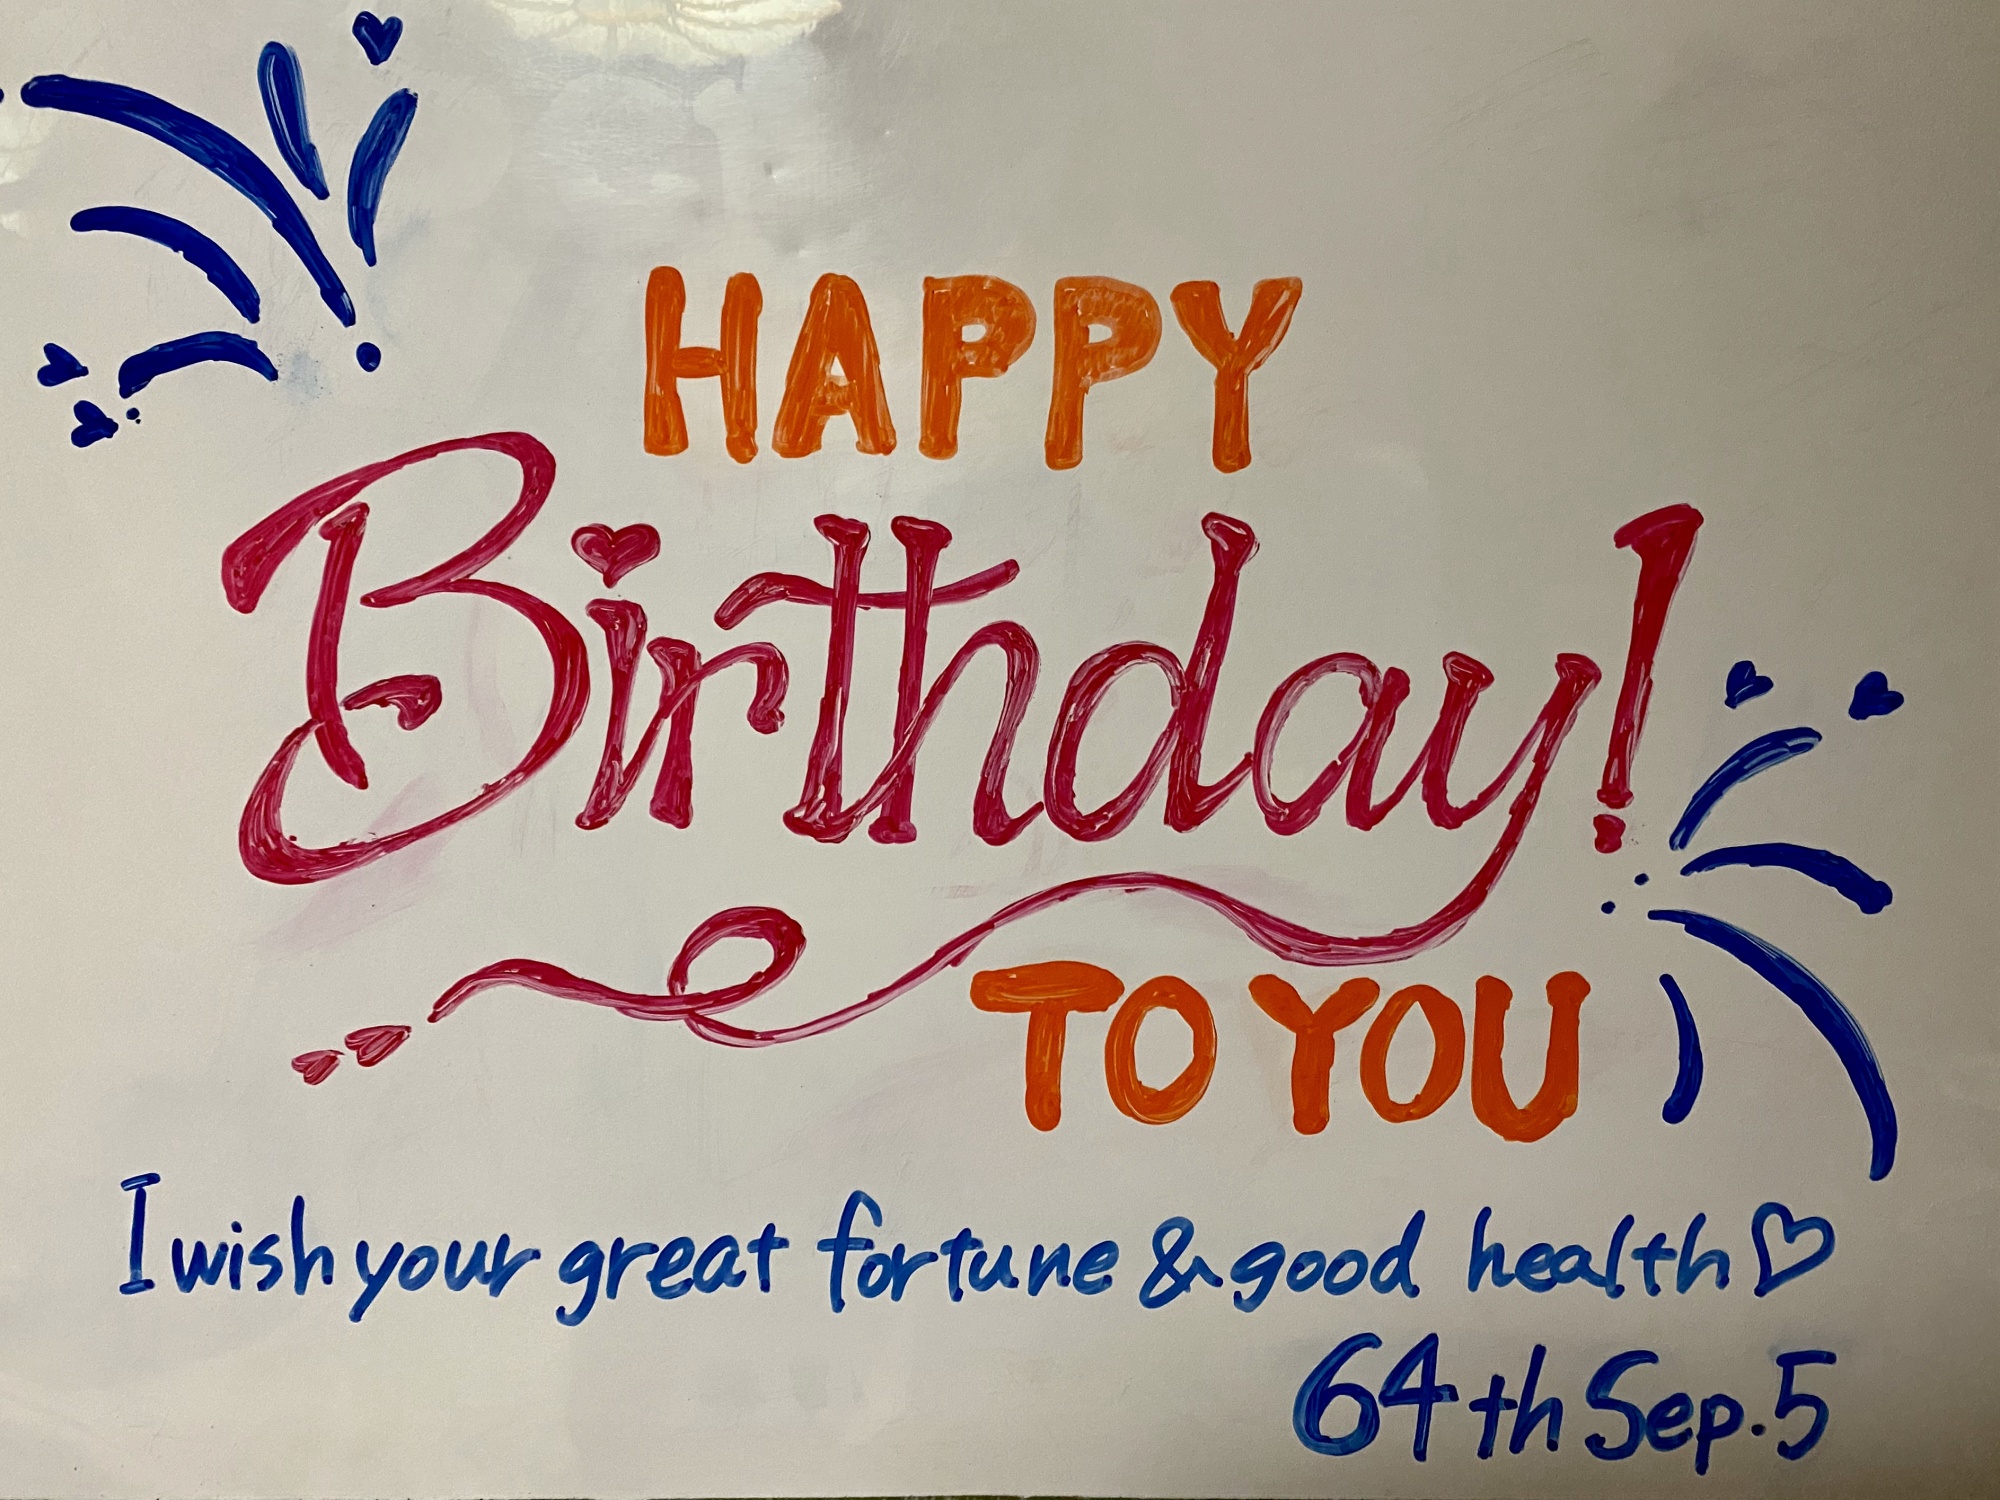 HAPPY
Birthday!
TO YOU
I wish your great fortune & good health♡
64th Sep. 5